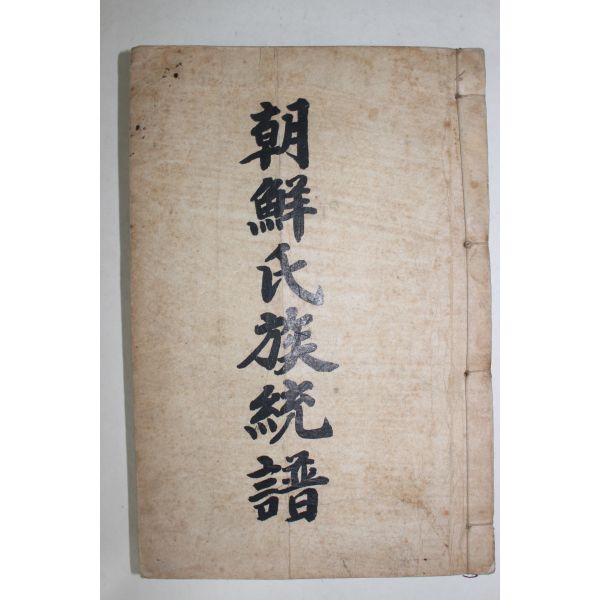 朝鮮氏族統譜